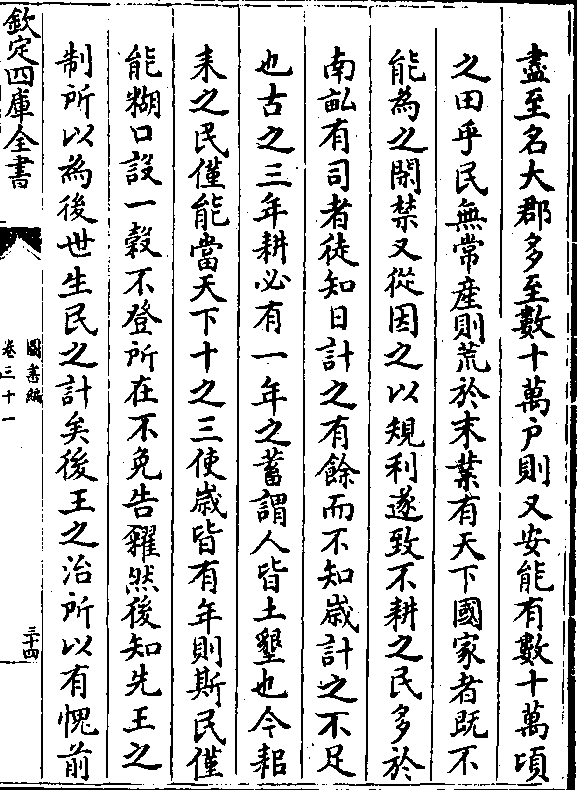 盡至名大郡多至數十萬户則又安能有數十萬頃
之田乎民無常産則荒於末業有天下國家者既不
能為之閑禁又從因之以規利遂致不耕之民多於
南畝有司者徒知日計之有餘而不知歳計之不足
也古之三年耕必有一年之蓄謂人皆土墾也今耜
耒之民僅能當天下十之三使歳皆有年則斯民僅
能糊口設一穀不登所在不免告糴然後知先王之
制所以為後世生民之計矣後王之治所以有愧前
欽定四庫全書
圖書編
卷三十一
三十四